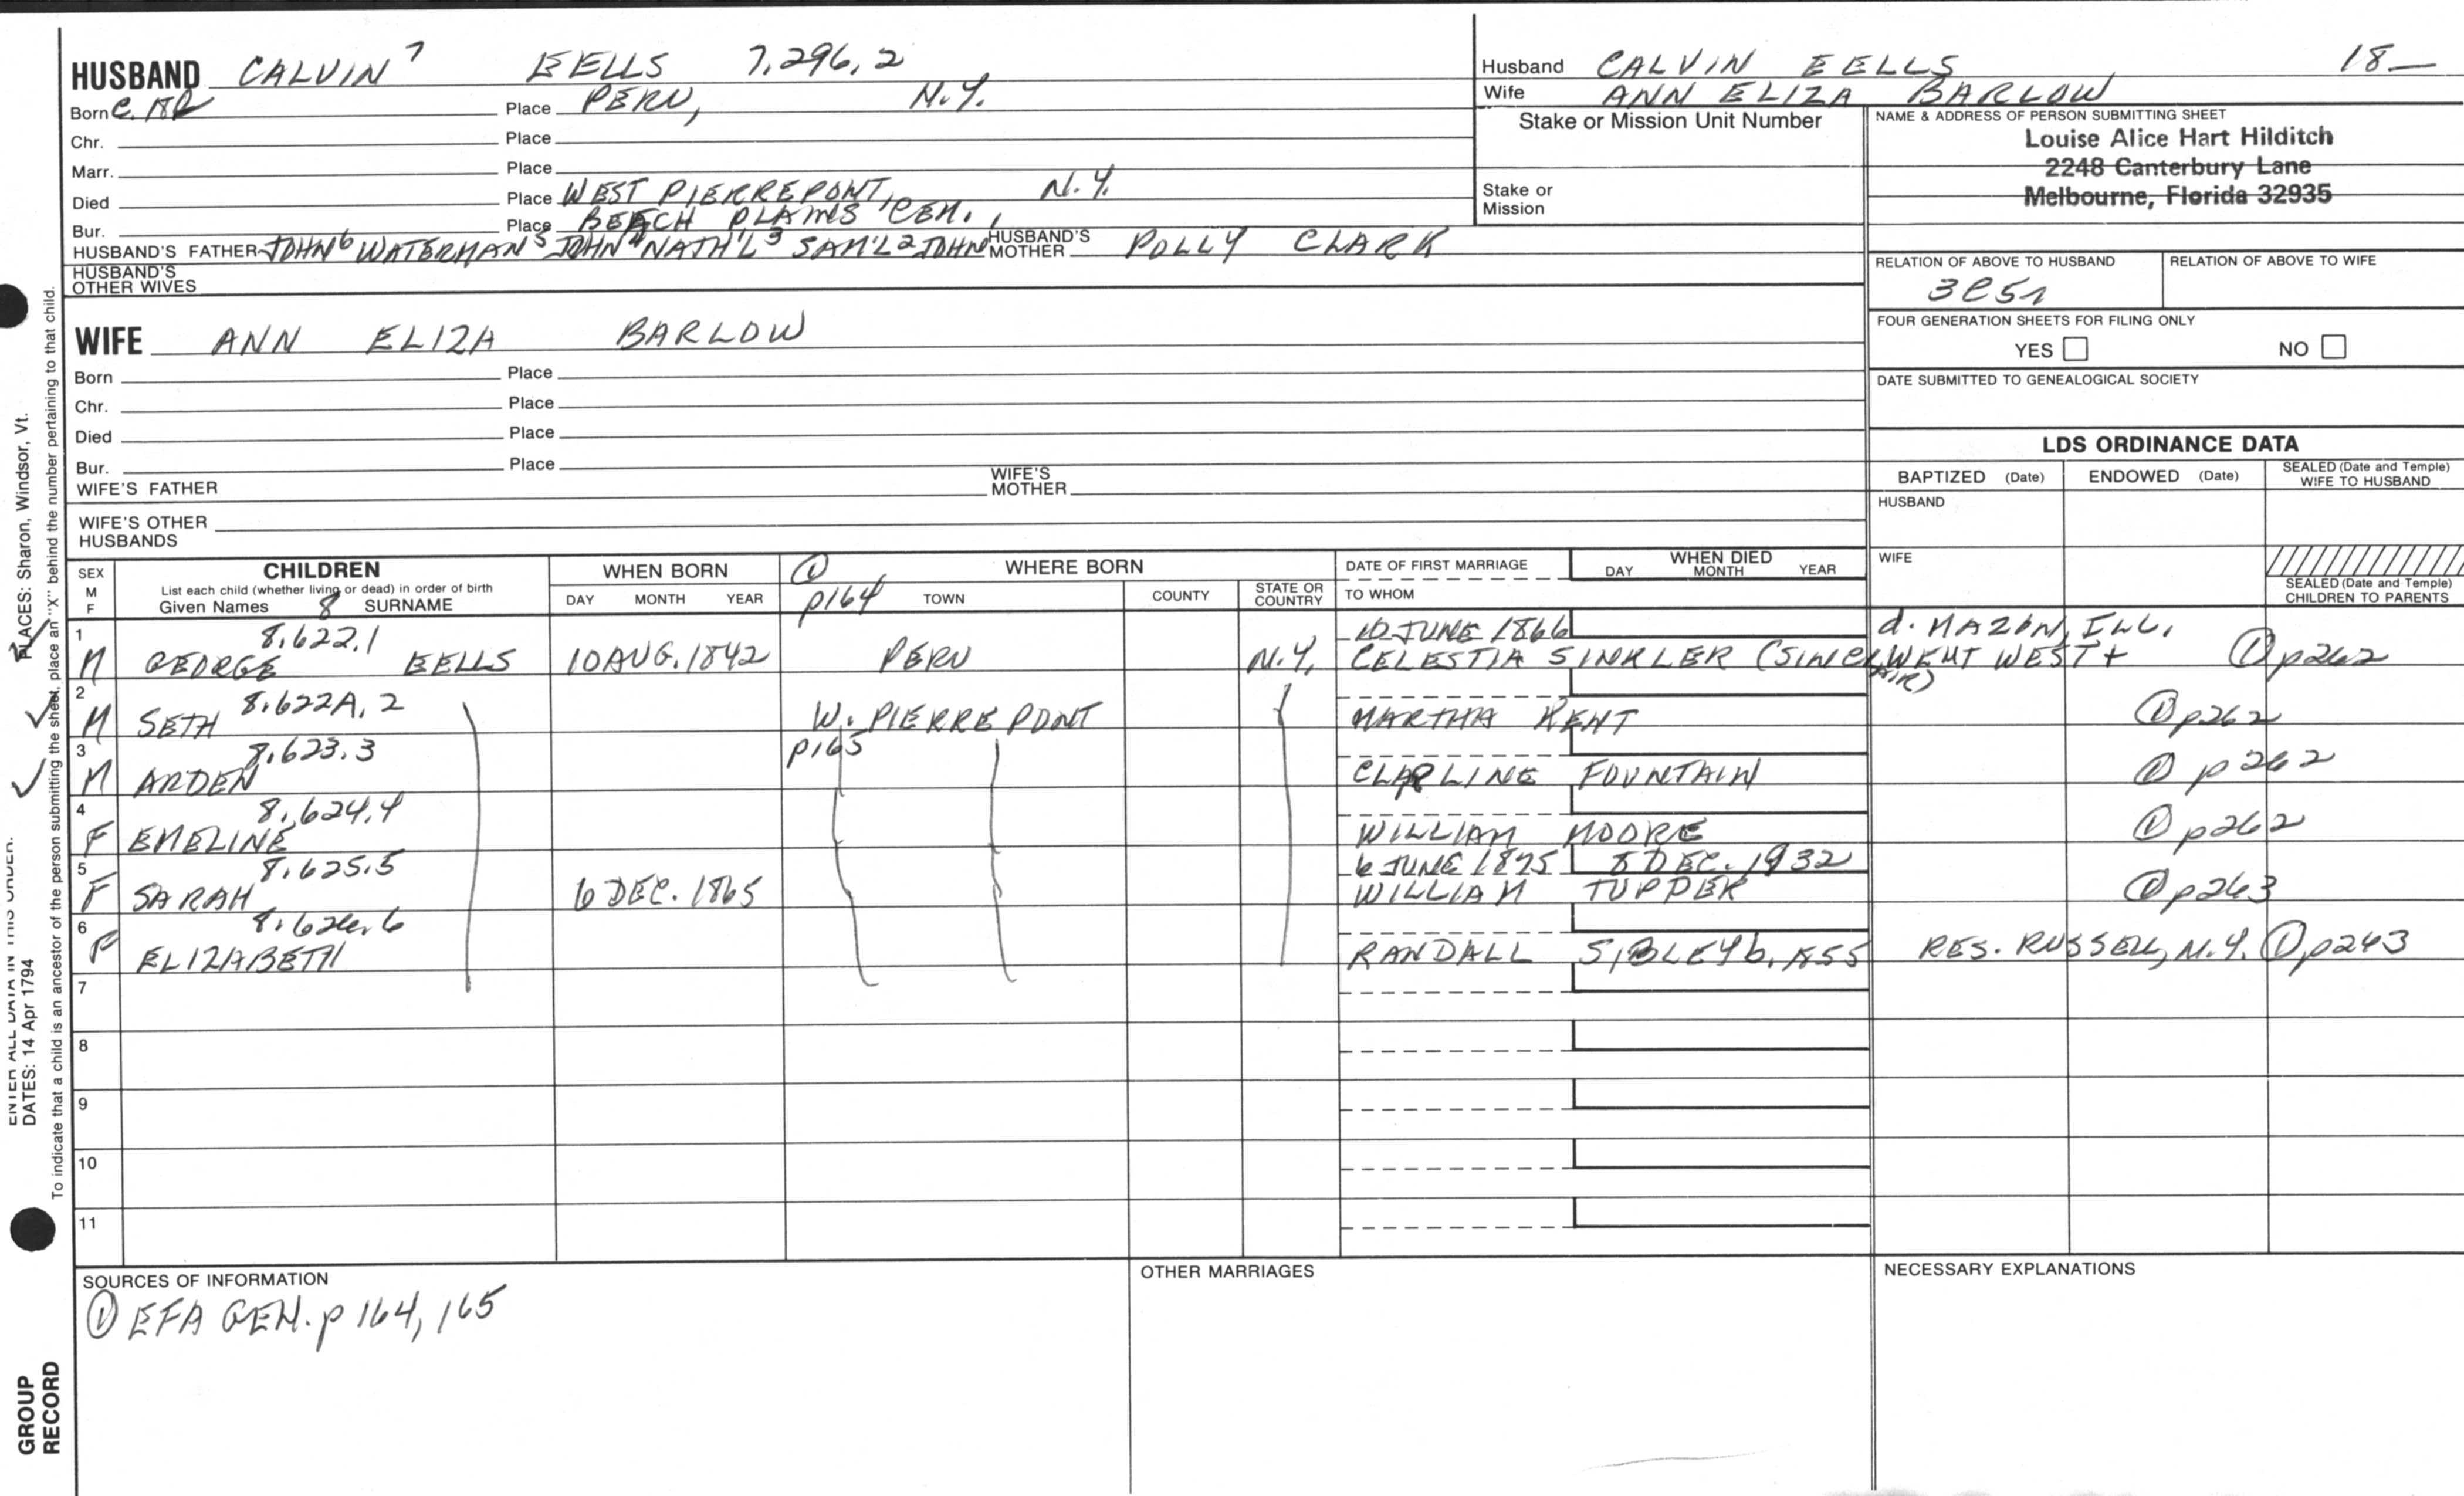 HUSBAND CALVIN 7 EELLS 7,296,2
Born Place PERU, N.Y.
Chr. Place
Marr. Place
Died Place WEST PIERREPONT, N.Y.
Bur. Place BEACH PLAINS CEM.,
HUSBAND'S FATHER JOHN 6 WATERMAN 5 JOHN 4 NATH'L 3 SAM'L 2 JOHN HUSBAND'S MOTHER POLLY CLARK
HUSBAND'S OTHER WIVES
Husband CALVIN EELLS 18—
Wife ANN ELIZA BARLOW
Stake or Mission Unit Number
Stake or Mission
NAME & ADDRESS OF PERSON SUBMITTING SHEET
Louise Alice Hart Hilditch
2248 Canterbury Lane
Melbourne, Florida 32935
RELATION OF ABOVE TO HUSBAND RELATION OF ABOVE TO WIFE
FOUR GENERATION SHEETS FOR FILING ONLY
YES NO
DATE SUBMITTED TO GENEALOGICAL SOCIETY
WIFE ANN ELIZA BARLOW
Born Place
Chr. Place
Died Place
Bur. Place
WIFE'S FATHER WIFE'S MOTHER
WIFE'S OTHER HUSBANDS
LDS ORDINANCE DATA
BAPTIZED (Date) ENDOWED (Date) SEALED (Date and Temple) WIFE TO HUSBAND
HUSBAND
WIFE
SEALED (Date and Temple) CHILDREN TO PARENTS
SEX M F
CHILDREN
List each child (whether living or dead) in order of birth
Given Names 8 SURNAME
WHEN BORN
DAY MONTH YEAR
① p164
WHERE BORN
TOWN COUNTY STATE OR COUNTRY
DATE OF FIRST MARRIAGE
TO WHOM
WHEN DIED
DAY MONTH YEAR
1 8.622.1 10 JUNE 1866 d. MAZON, ILL.
M GEORGE EELLS 10 AUG. 1842 PERU N.Y. CELESTIA SINKLER (SINCLAIR) WENT WEST + ① p262
2 8.622A.2
M SETH W. PIERREPONT MARTHA KENT ① p262
3 8.623.3 p165
M ARDEN FOUNTAIN ① p262
4 8.624.4
F EMELINE WILLIAM MOORE ① p262
5 8.625.5 6 JUNE 1895 8 DEC. 1932
F SARAH 6 DEC. 1865 WILLIAM TUPPER ① p263
6 8.626.6
F ELIZABETH RANDALL SIBLEY b. 1855 RES. RUSSELL, N.Y. ① p263
7
8
9
10
11
SOURCES OF INFORMATION
① EFA GEN. p 164, 165
OTHER MARRIAGES
NECESSARY EXPLANATIONS
PLACES: Sharon, Windsor, Vt.
ENTER ALL DATA IN THIS ORDER:
DATES: 14 Apr 1794
To indicate that a child is an ancestor of the person submitting the sheet, place an "X" behind the number pertaining to that child.
GROUP RECORD